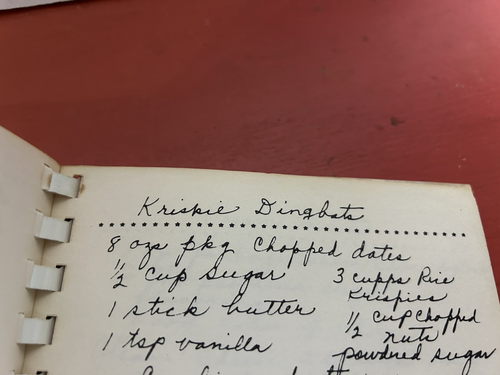 Kriskie Dingbats
8 ozs pkg Chopped dates
1/2 cup sugar
1 stick butter
1 tsp vanilla
3 cupps Rice
Krispies
1/2 cup chopped
nuts
powdered sugar